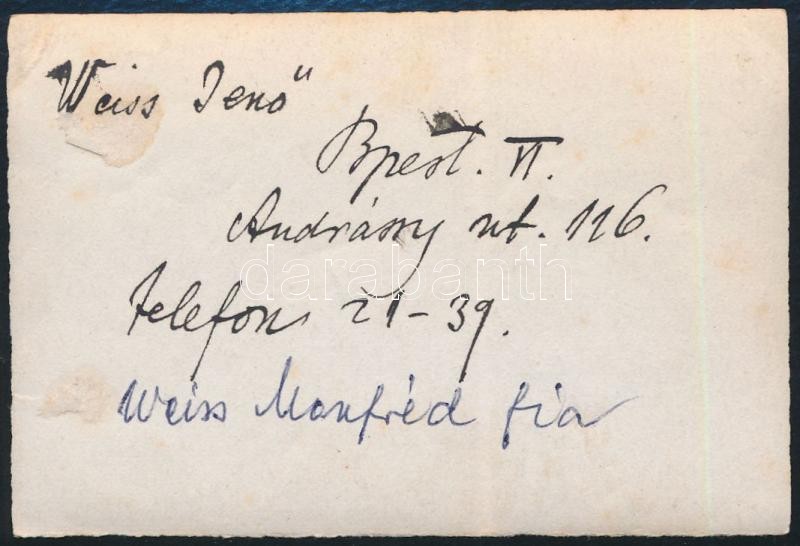 Weiss Jenő
Bpest. VI.
Andrássy ut. 116.
darabanth
Telefon 21-39.
Weiss Manfréd fia